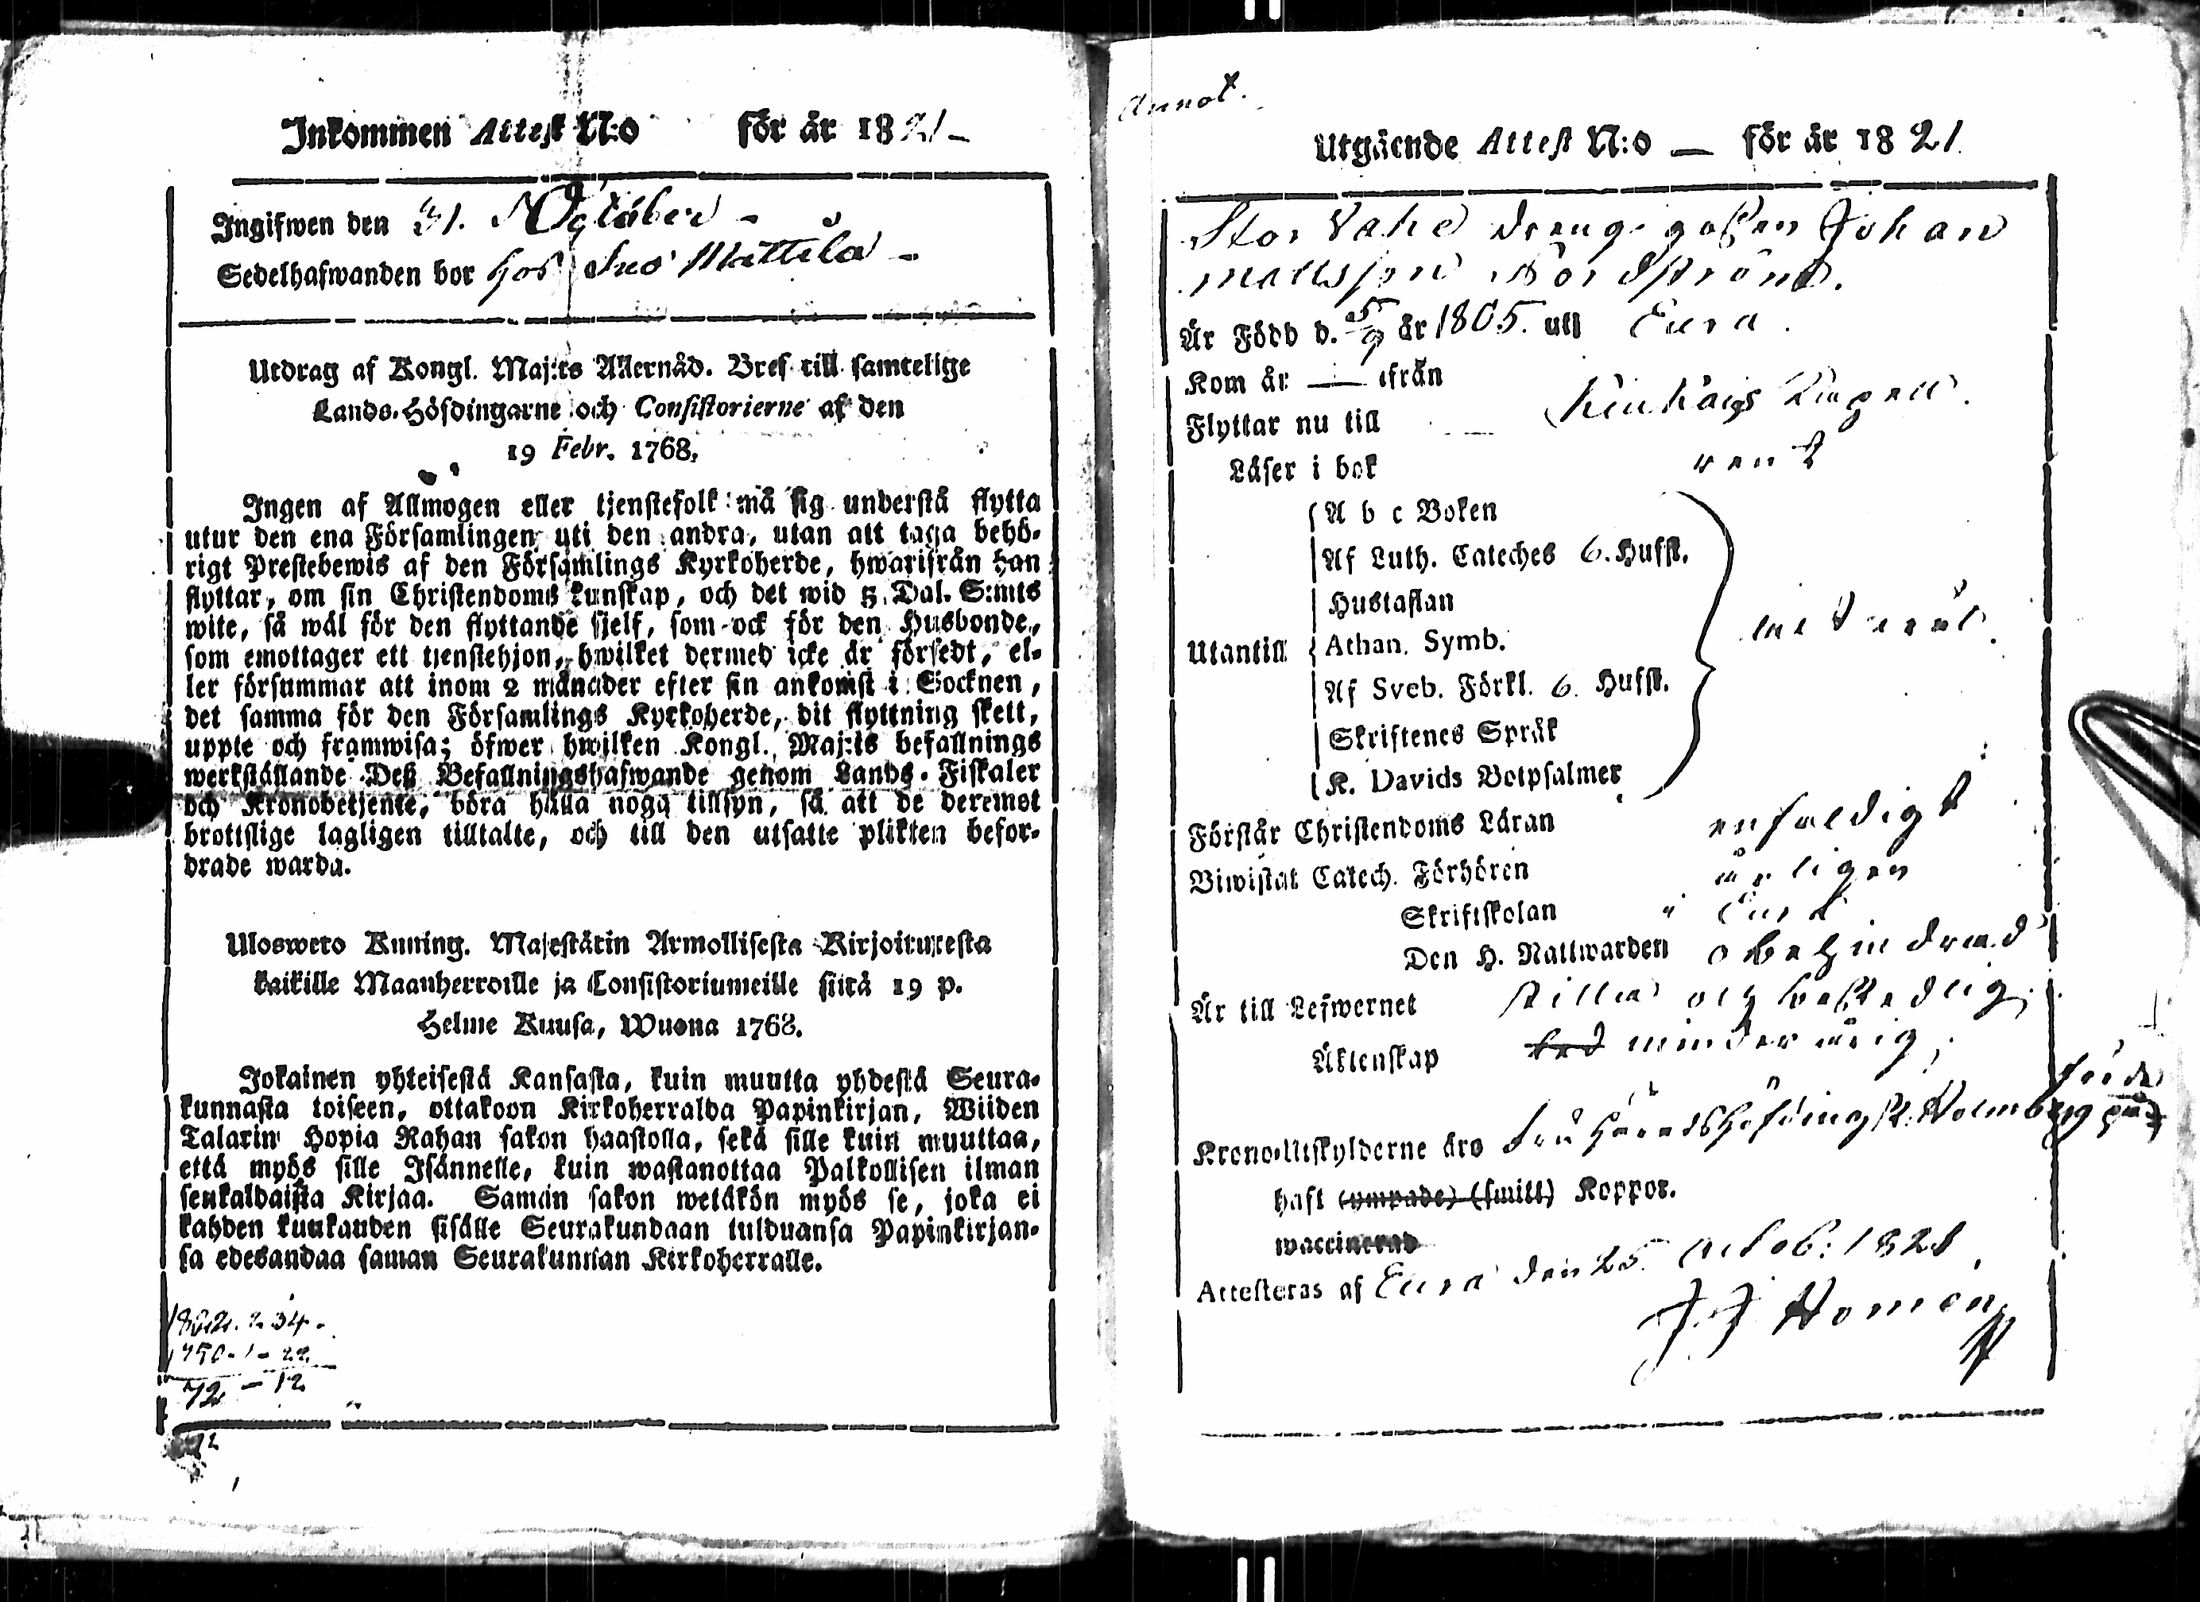 Inkommen Attest N:o för år 1821
Ingifwen den 31. October
Sedelhafwanden bor hos Mattila
Utdrag af Kongl. Maj:ts Allernåd. Bref till samtelige
Lands-Höfdingarne och Consistorierne af den
19 Febr. 1768.
Ingen af Allmogen eller tjenstefolk må sig understå flytta
utur den ena Församlingen uti den andra, utan att taga behö-
rigt Prestebewis af den Församlings Kyrkoherde, hwarifrån han
flyttar, om sin Christendoms kunskap, och det wid 5 Dal. S:mts
wite, så wäl för den flyttande sjelf, som ock för den Husbonde,
som emottager ett tjenstehjon, hwilket dermed icke är försedt, el-
ler försummar att inom 2 månader efter sin ankomst i Socknen,
det samma för den Församlings Kyrkoherde, dit flyttning skett,
uppte och framwisa; öfwer hwilken Kongl. Maj:ts befallnings
werkställande Deß Befallningshafwande genom Lands-Fiskaler
och Kronobetjente, böra hålla noga tillsyn, så att de deremot
brottslige lagligen tilltalte, och till den utsatte plikten befor-
drade warda.
Ulosweto Kuning. Majestätin Armollisesta Kirjoituxesta
kaikille Maanherroille ja Consistoriumeille siitä 19 p.
Helme Kuusa, Wuona 1768.
Jokainen yhteisestä Kansasta, kuin muutta yhdestä Seura-
kunnasta toiseen, ottakoon Kirkoherralda Papinkirjan, Wiiden
Talarin Hopia Rahan sakon haastolla, sekä sille kuin muuttaa,
että myös sille Isännelle, kuin wastanottaa Palkollisen ilman
senkaldaista Kirjaa. Saman sakon wetäkön myös se, joka ei
kahden kuukauden sisälle Seurakundaan tulduansa Papinkirjan-
sa edesandaa saman Seurakunnan Kirkoherralle.
72 - 12
Annot.
Utgående Attest N:o — för år 1821
Stor Vahe drengegoßen Johan
Mattsson Nordström.
Är Född d. 5/9 år 1805. uti Eura.
Kom år — ifrån
Flyttar nu till Kiukais Capell.
Läser i bok rent
A b c Boken
Af Luth. Cateches 6. Hufst.
Hustaflan
Utantill Athan. Symb.
Af Sveb. Förkl. 6. Hufst.
Skriftenes Språk
K. Davids Botpsalmer
Förstår Christendoms Läran enfaldigt
Biwistat Catech. Förhören årligen
Skriftskolan
Den H. Nattwarden obehindrad
Är till Lefwernet stilla och beskedlig.
Äktenskap minderårig,
Krono-Utskylderne äro
haft (ympade) (smitt) Koppor.
waccinerad
Attesteras af Eura den 25. Octob: 1821.
J J Nomen